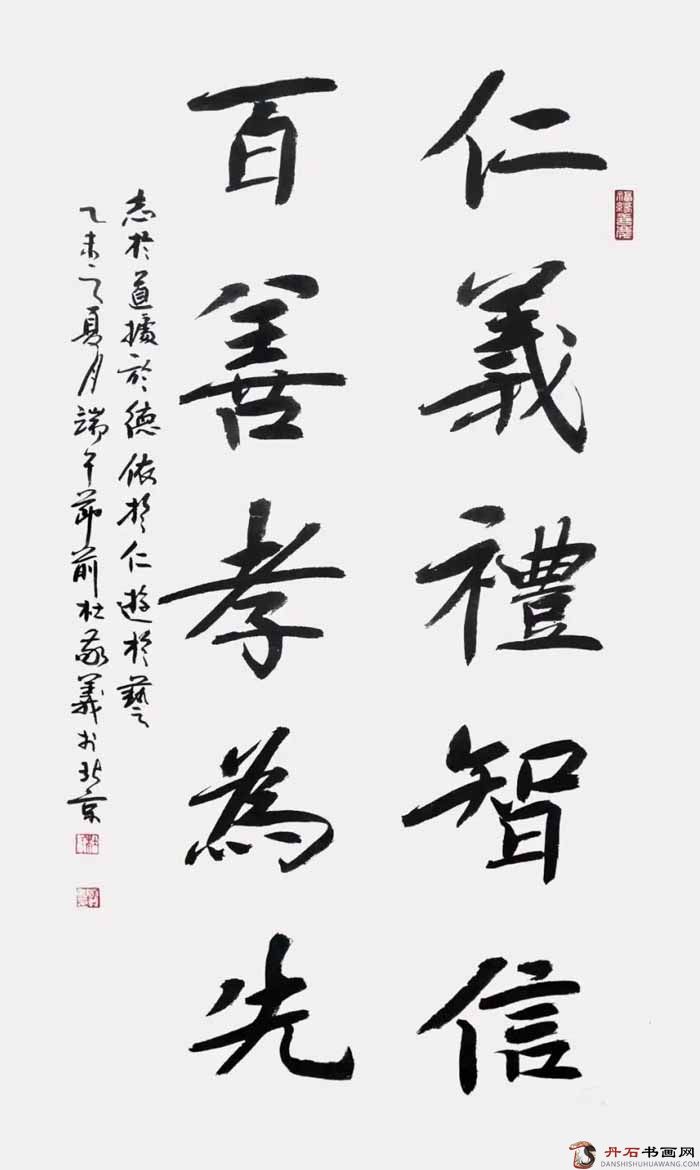 仁義禮智信
百善孝為先
志於道據於德依於仁遊於藝
乙未之夏月端午節前杜敬義於北京
丹石书画网
DANSHISHUHUAWANG.COM